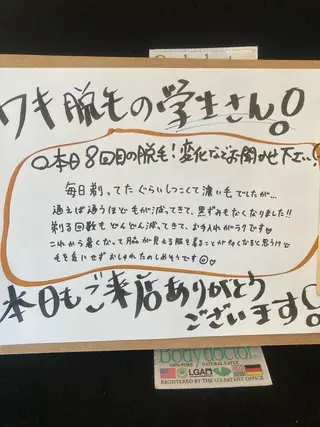 ワキ脱毛の学生さん!
Q本日8回目の脱毛!変化などお聞かせ下さい!
毎日剃ってたぐらいしつこくて濃い毛でしたが…
通えば通うほど毛が減ってきて、黒ずみもなくなりました!!
剃る回数もどんどん減ってきて、お手入れがラクです♡
これから暑くなって脇が見える服を着ることが多くなると思うけど
毛を気にせずおしゃれたのしめそうです☺♡
本日もご来店ありがとう
ございます!
bodydoctor
100% PURE NATURAL LATEX
LGA
REGISTERED BY THE U.S PATENT OFFICE